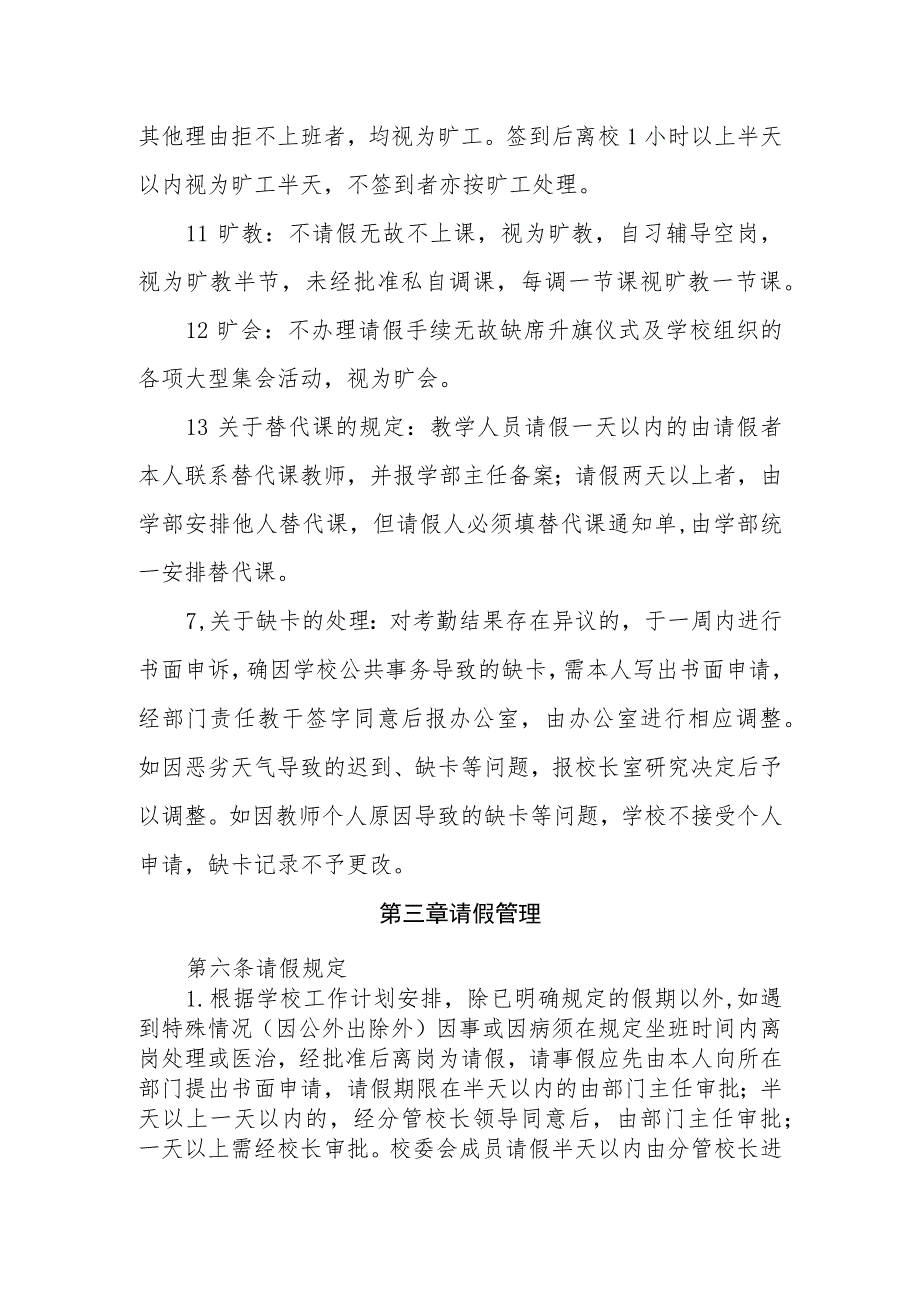 其他理由拒不上班者，均视为旷工。签到后离校1小时以上半天
以内视为旷工半天，不签到者亦按旷工处理。
11 旷教：不请假无故不上课，视为旷教，自习辅导空岗，
视为旷教半节，未经批准私自调课，每调一节课视旷教一节课。
12 旷会：不办理请假手续无故缺席升旗仪式及学校组织的
各项大型集会活动，视为旷会。
13 关于替代课的规定：教学人员请假一天以内的由请假者
本人联系替代课教师，并报学部主任备案；请假两天以上者，由
学部安排他人替代课，但请假人必须填替代课通知单,由学部统
一安排替代课。
7,关于缺卡的处理：对考勤结果存在异议的，于一周内进行
书面申诉，确因学校公共事务导致的缺卡，需本人写出书面申请，
经部门责任教干签字同意后报办公室，由办公室进行相应调整。
如因恶劣天气导致的迟到、缺卡等问题，报校长室研究决定后予
以调整。如因教师个人原因导致的缺卡等问题，学校不接受个人
申请，缺卡记录不予更改。
第三章请假管理
第六条请假规定
1.根据学校工作计划安排，除已明确规定的假期以外,如遇
到特殊情况（因公外出除外）因事或因病须在规定坐班时间内离
岗处理或医治，经批准后离岗为请假，请事假应先由本人向所在
部门提出书面申请，请假期限在半天以内的由部门主任审批；半
天以上一天以内的，经分管校长领导同意后，由部门主任审批；
一天以上需经校长审批。校委会成员请假半天以内由分管校长进